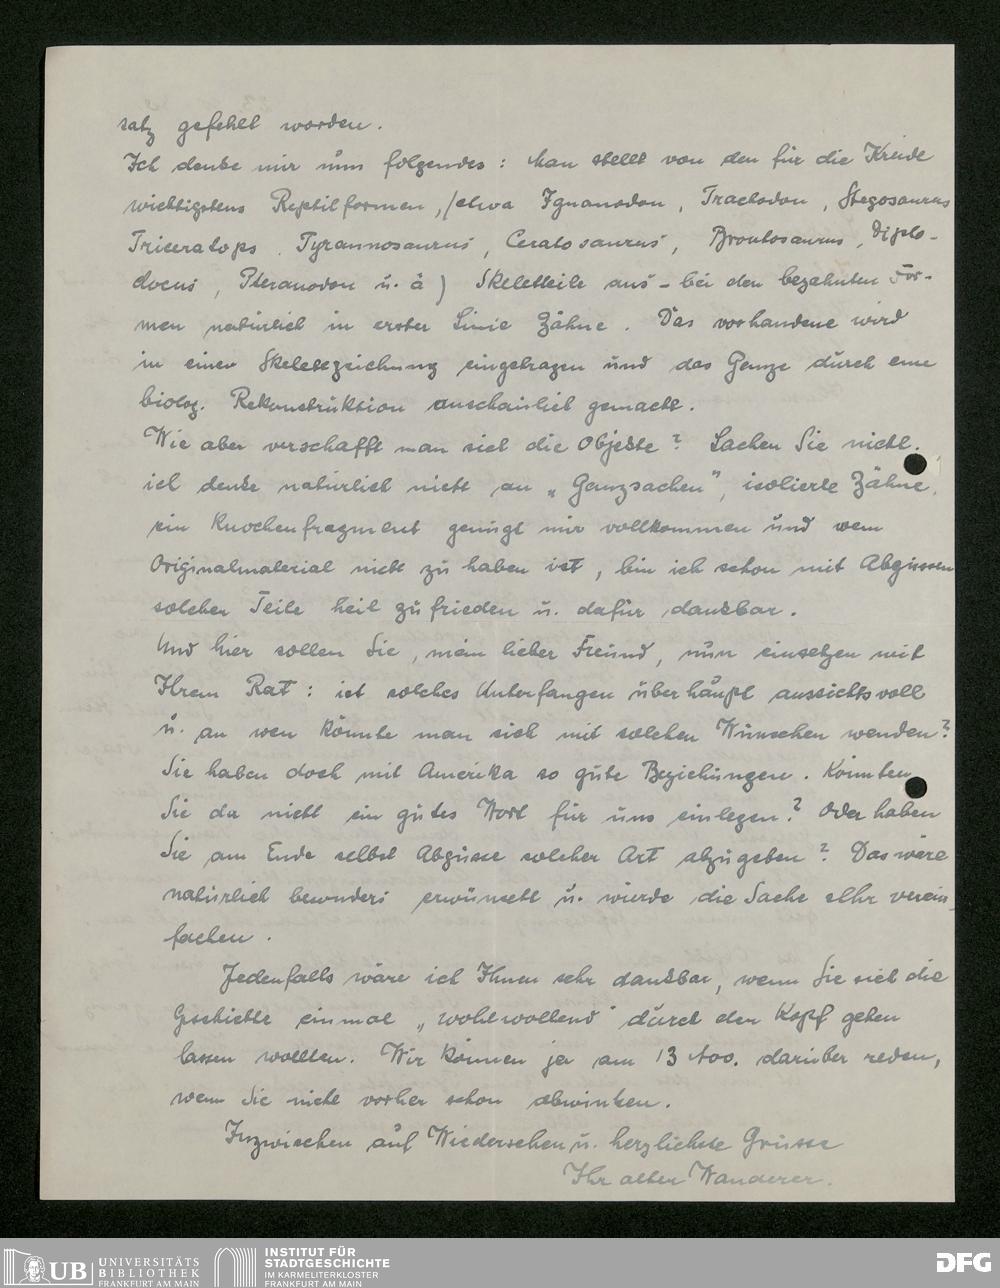 satz gefehlt worden.
Ich denke mir nun folgendes: Man stellt von den für die Kreide
wichtigstens Reptilformen, (etwa Iguanodon, Trachodon, Stegosaurus
Triceratops. Tyrannosaurus, Ceratosaurus, Brontosaurus, Diplo-
docus, Pteranodon u. ä) Skeletteile aus - bei den bezahnten For-
men natürlich in erster Linie Zähne. Das vorhandene wird
in einer Skeletzeichnung eingetragen und das Ganze durch eine
biolog. Rekonstruktion anschaulich gemacht.
Wie aber verschafft man sich die Objekte? Lachen Sie nicht,
ich denke natürlich nicht an „Ganzsachen", isolierte Zähne,
ein Knochenfragment genügt mir vollkommen und wenn
Originalmaterial nicht zu haben ist, bin ich schon mit Abgüssen
solcher Teile heil zufrieden u. dafür dankbar.
Und hier sollen Sie, mein lieber Freund, nun einsetzen mit
Ihrem Rat: ist solches Unterfangen überhaupt aussichtsvoll
u. an wen könnte man sich mit solchen Wünschen wenden?
Sie haben doch mit Amerika so gute Beziehungen. Könnten
Sie da nicht ein gutes Wort für uns einlegen? Oder haben
Sie am Ende selbst Abgüsse solcher Art abzugeben? Das wäre
natürlich besonders erwünscht u. würde die Sache sehr verein-
fachen.
Jedenfalls wäre ich Ihnen sehr dankbar, wenn Sie sich die
Geschichte einmal „wohlwollend" durch den Kopf gehen
lassen wollten. Wir können ja am 13 Nov. darüber reden,
wenn Sie nicht vorher schon abwinken.
Inzwischen auf Wiedersehen u. herzlichste Grüsse
Ihr alter Wanderer.
UB UNIVERSITÄTS BIBLIOTHEK FRANKFURT AM MAIN
INSTITUT FÜR STADTGESCHICHTE IM KARMELITERKLOSTER FRANKFURT AM MAIN
DFG